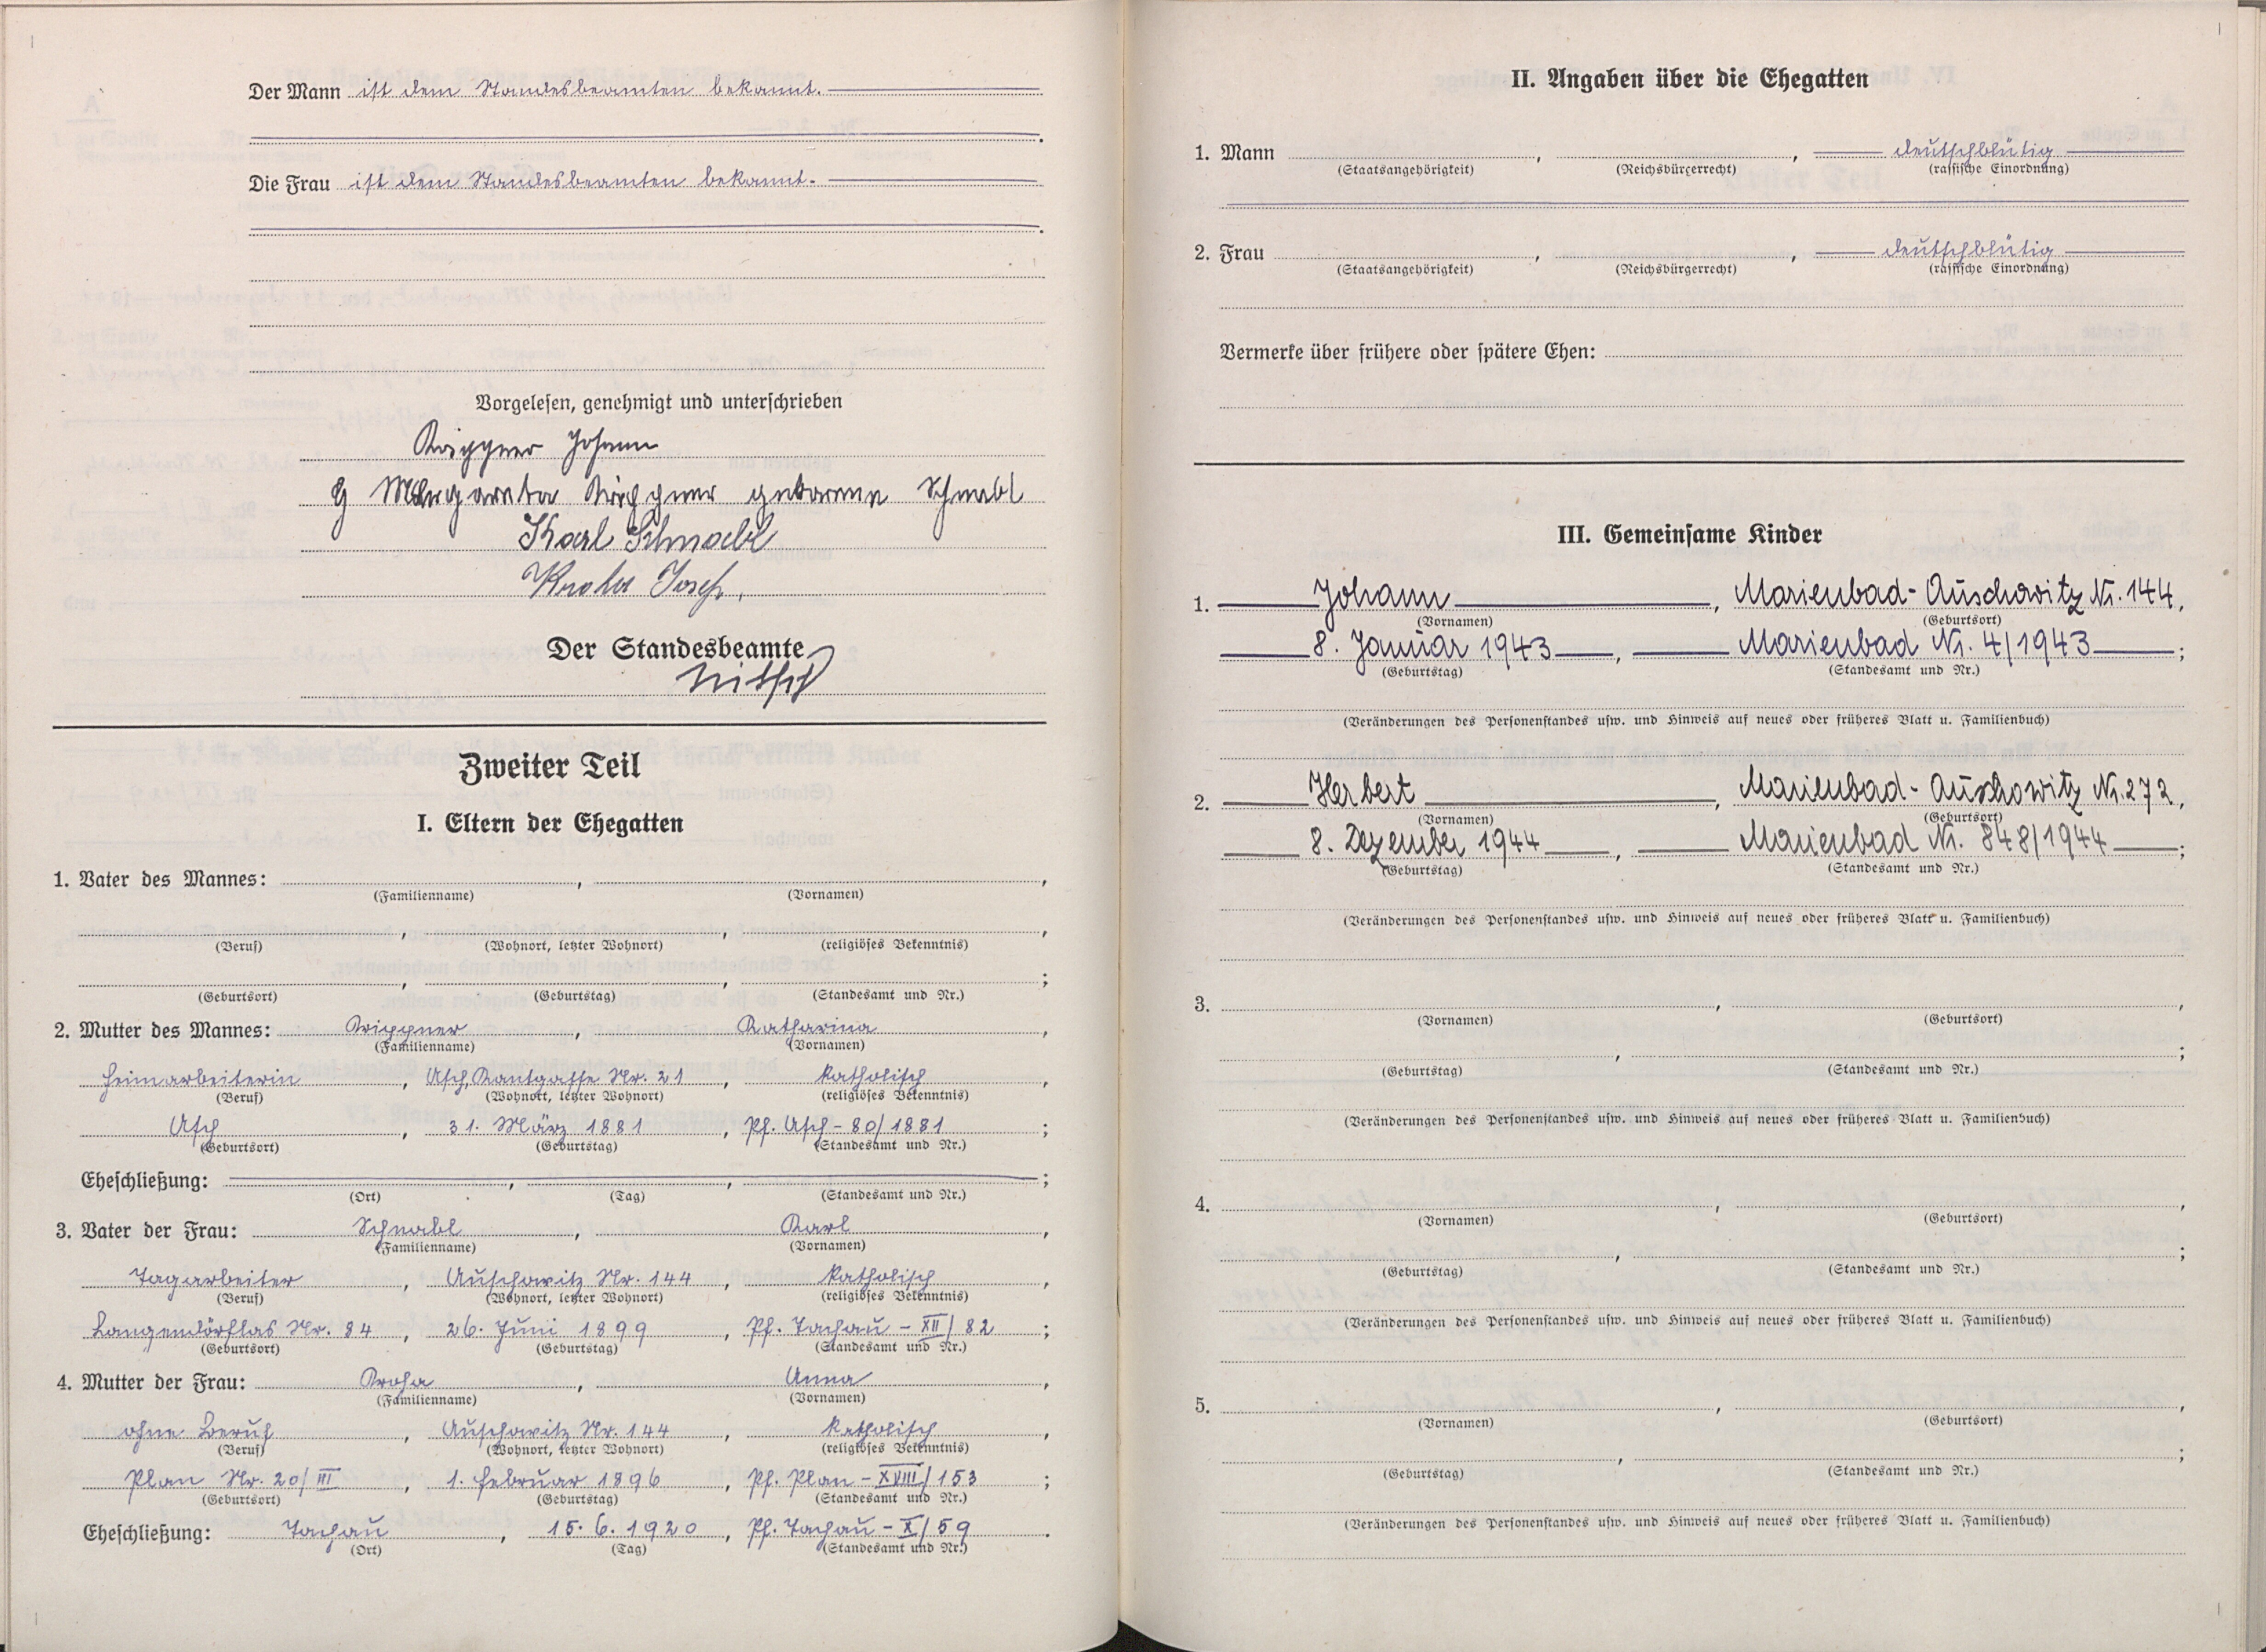 Der Mann ist dem Standesbeamten bekannt.
Die Frau ist dem Standesbeamten bekannt.
Vorgelesen, genehmigt und unterschrieben
Krippner Johann
Margareta Krippner geborene Schnabl
Karl Schnabl
Kroha Josef.
Der Standesbeamte
Nitsch
Zweiter Teil
I. Eltern der Ehegatten
1. Vater des Mannes: , ,
(Familienname) (Vornamen)
(Beruf) (Wohnort, letzter Wohnort) (religiöses Bekenntnis)
(Geburtsort) (Geburtstag) (Standesamt und Nr.)
2. Mutter des Mannes: Krippner, Katharina,
(Familienname) (Vornamen)
Heimarbeiterin, Asch, Kantgasse Nr. 21, katholisch,
(Beruf) (Wohnort, letzter Wohnort) (religiöses Bekenntnis)
Asch, 31. März 1881, Pf. Asch - 80/1881;
(Geburtsort) (Geburtstag) (Standesamt und Nr.)
Eheschließung: , , ;
(Ort) (Tag) (Standesamt und Nr.)
3. Vater der Frau: Schnabl, Karl,
(Familienname) (Vornamen)
Tagarbeiter, Auschowitz Nr. 144, katholisch,
(Beruf) (Wohnort, letzter Wohnort) (religiöses Bekenntnis)
Langendörflas Nr. 84, 26. Juni 1899, Pf. Tachau - XII/82;
(Geburtsort) (Geburtstag) (Standesamt und Nr.)
4. Mutter der Frau: Kroha, Anna,
(Familienname) (Vornamen)
ohne Beruf, Auschowitz Nr. 144, katholisch,
(Beruf) (Wohnort, letzter Wohnort) (religiöses Bekenntnis)
Plan Nr. 20/III, 1. Februar 1896, Pf. Plan - XVIII/153;
(Geburtsort) (Geburtstag) (Standesamt und Nr.)
Eheschließung: Tachau, 15.6.1920, Pf. Tachau - X/59.
(Ort) (Tag) (Standesamt und Nr.)
II. Angaben über die Ehegatten
1. Mann , , deutschblütig
(Staatsangehörigkeit) (Reichsbürgerrecht) (rassische Einordnung)
2. Frau , , deutschblütig
(Staatsangehörigkeit) (Reichsbürgerrecht) (rassische Einordnung)
Vermerke über frühere oder spätere Ehen:
III. Gemeinsame Kinder
1. Johann, Marienbad-Auschowitz Nr. 144,
(Vornamen) (Geburtsort)
8. Januar 1943, Marienbad Nr. 4/1943;
(Geburtstag) (Standesamt und Nr.)
(Veränderungen des Personenstandes usw. und Hinweis auf neues oder früheres Blatt u. Familienbuch)
2. Herbert, Marienbad-Auschowitz Nr. 272,
(Vornamen) (Geburtsort)
8. Dezember 1944, Marienbad Nr. 848/1944;
(Geburtstag) (Standesamt und Nr.)
(Veränderungen des Personenstandes usw. und Hinweis auf neues oder früheres Blatt u. Familienbuch)
3. , ,
(Vornamen) (Geburtsort)
(Geburtstag) (Standesamt und Nr.)
(Veränderungen des Personenstandes usw. und Hinweis auf neues oder früheres Blatt u. Familienbuch)
4. , ,
(Vornamen) (Geburtsort)
(Geburtstag) (Standesamt und Nr.)
(Veränderungen des Personenstandes usw. und Hinweis auf neues oder früheres Blatt u. Familienbuch)
5. , ,
(Vornamen) (Geburtsort)
(Geburtstag) (Standesamt und Nr.)
(Veränderungen des Personenstandes usw. und Hinweis auf neues oder früheres Blatt u. Familienbuch)